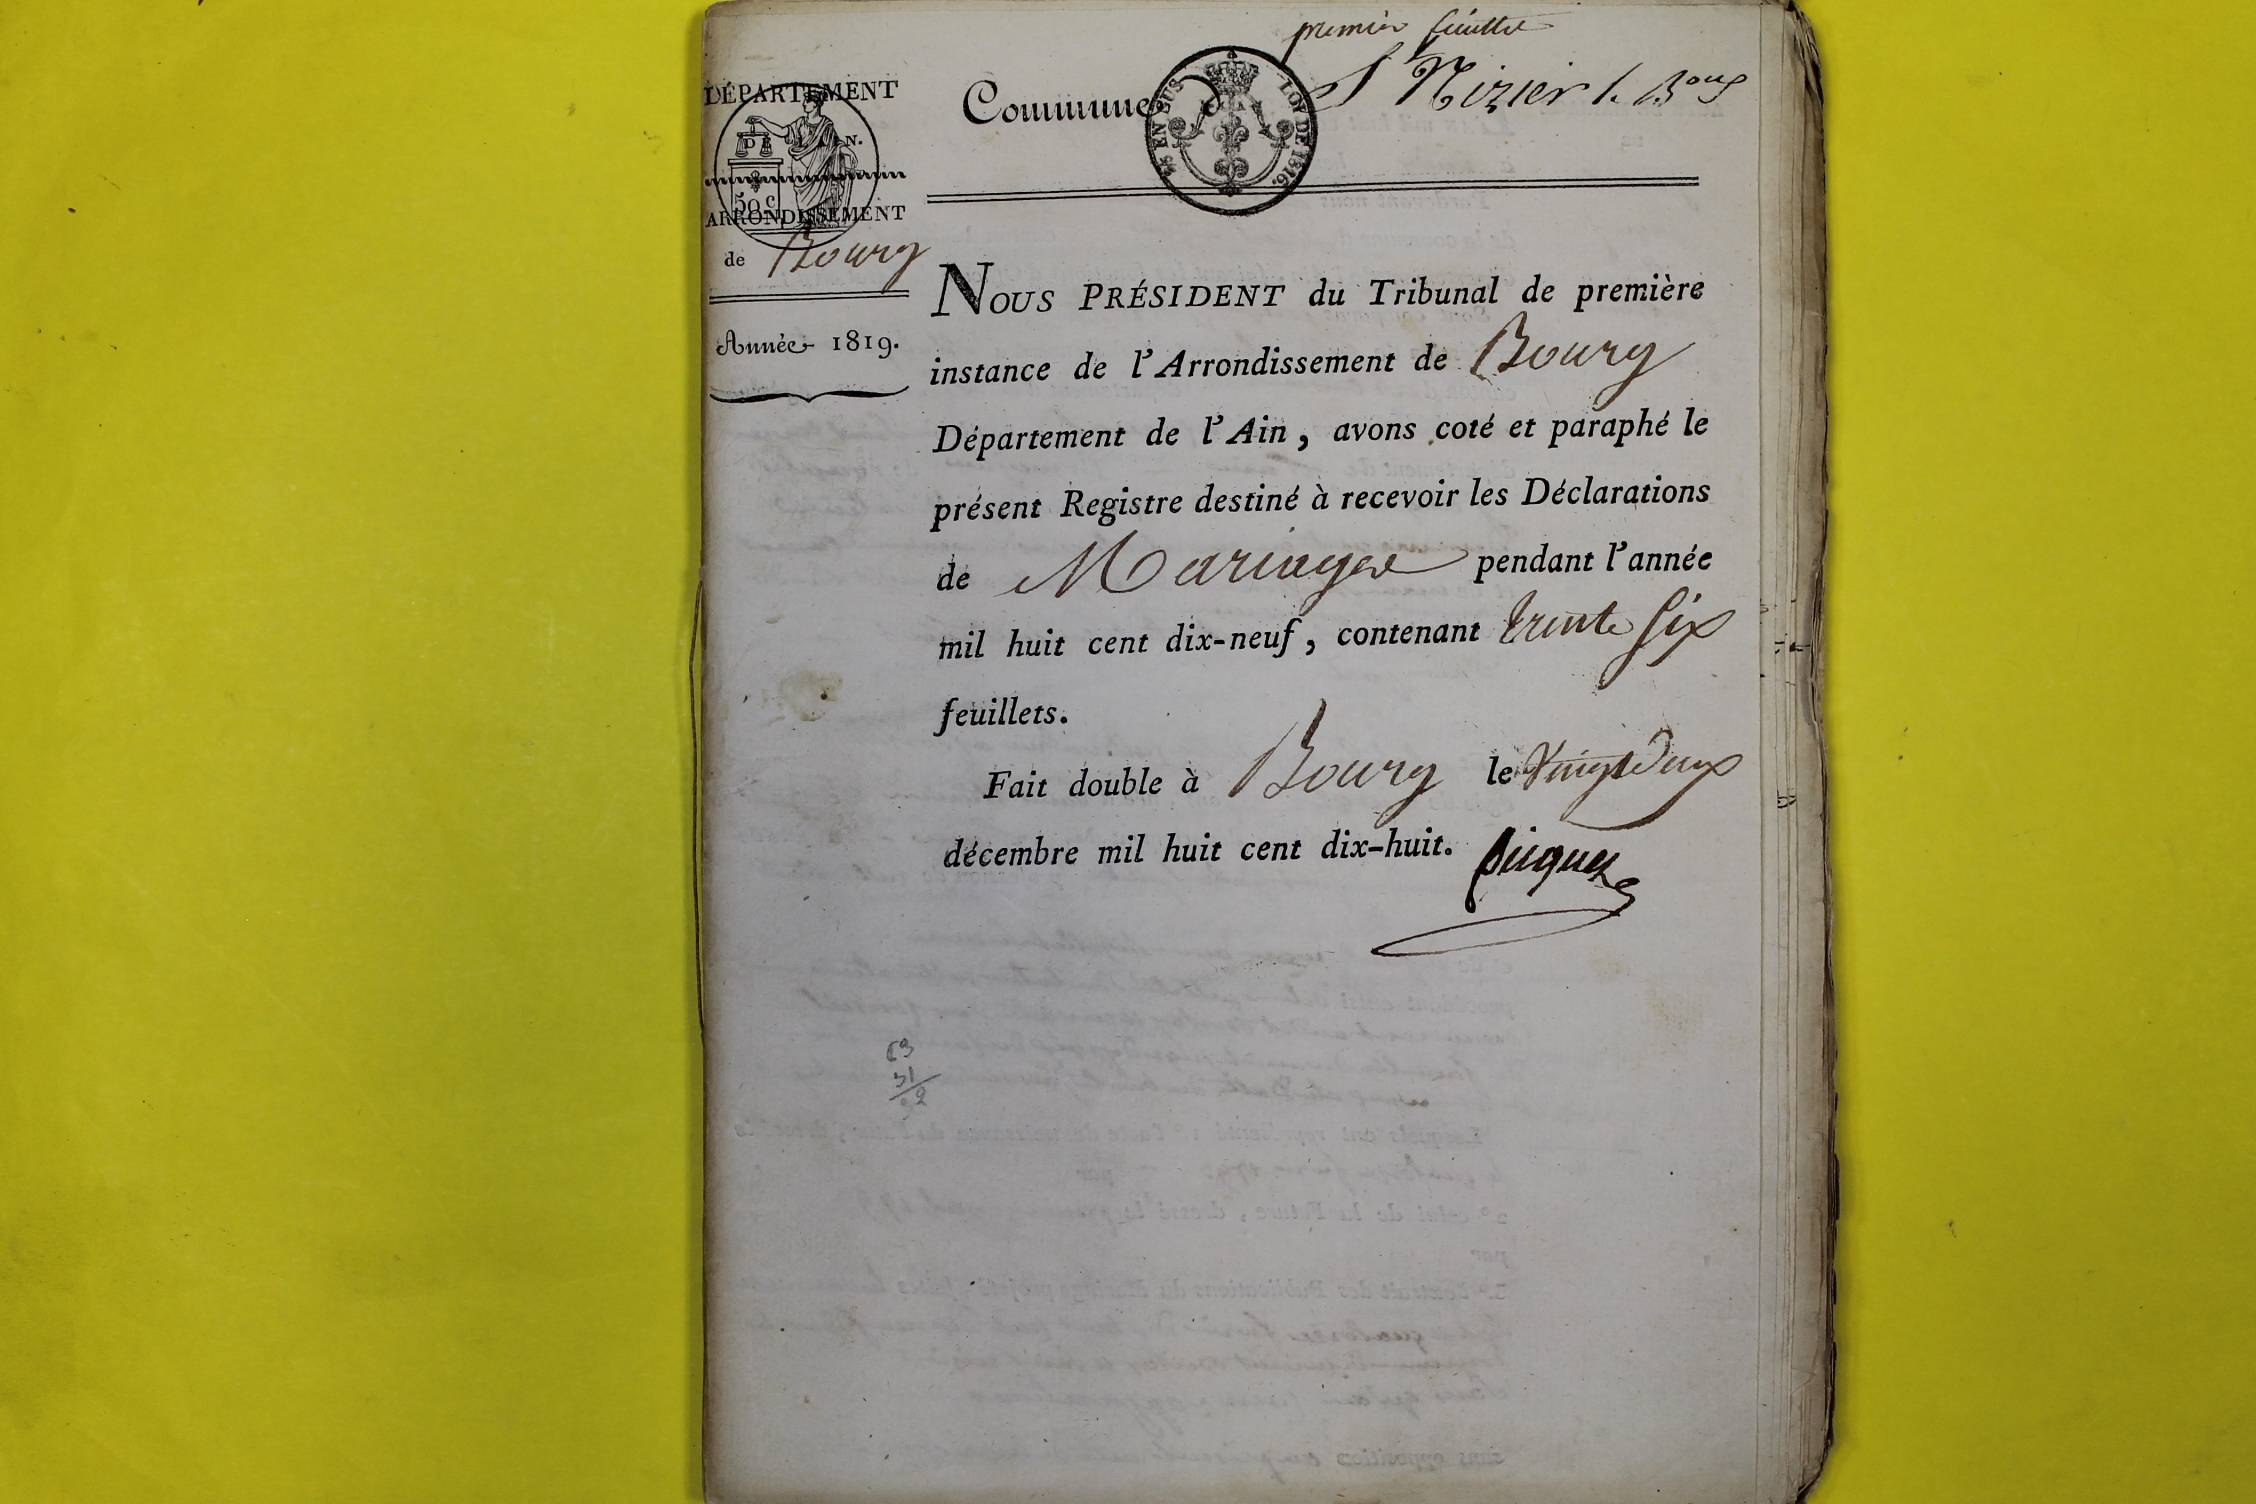 premier feuillet
DÉPARTEMENT
DE L'AIN.
50 c
ARRONDISSEMENT
de Bourg
Année 1819.
Commune d S^t Nizier l. B^oux
EN SUS
LOI DE 1816.
NOUS PRÉSIDENT du Tribunal de première
instance de l'Arrondissement de Bourg
Département de l'Ain, avons coté et paraphé le
présent Registre destiné à recevoir les Déclarations
de Mariages pendant l'année
mil huit cent dix-neuf, contenant trente Six
feuillets.
Fait double à Bourg le Vingt Deux
décembre mil huit cent dix-huit.